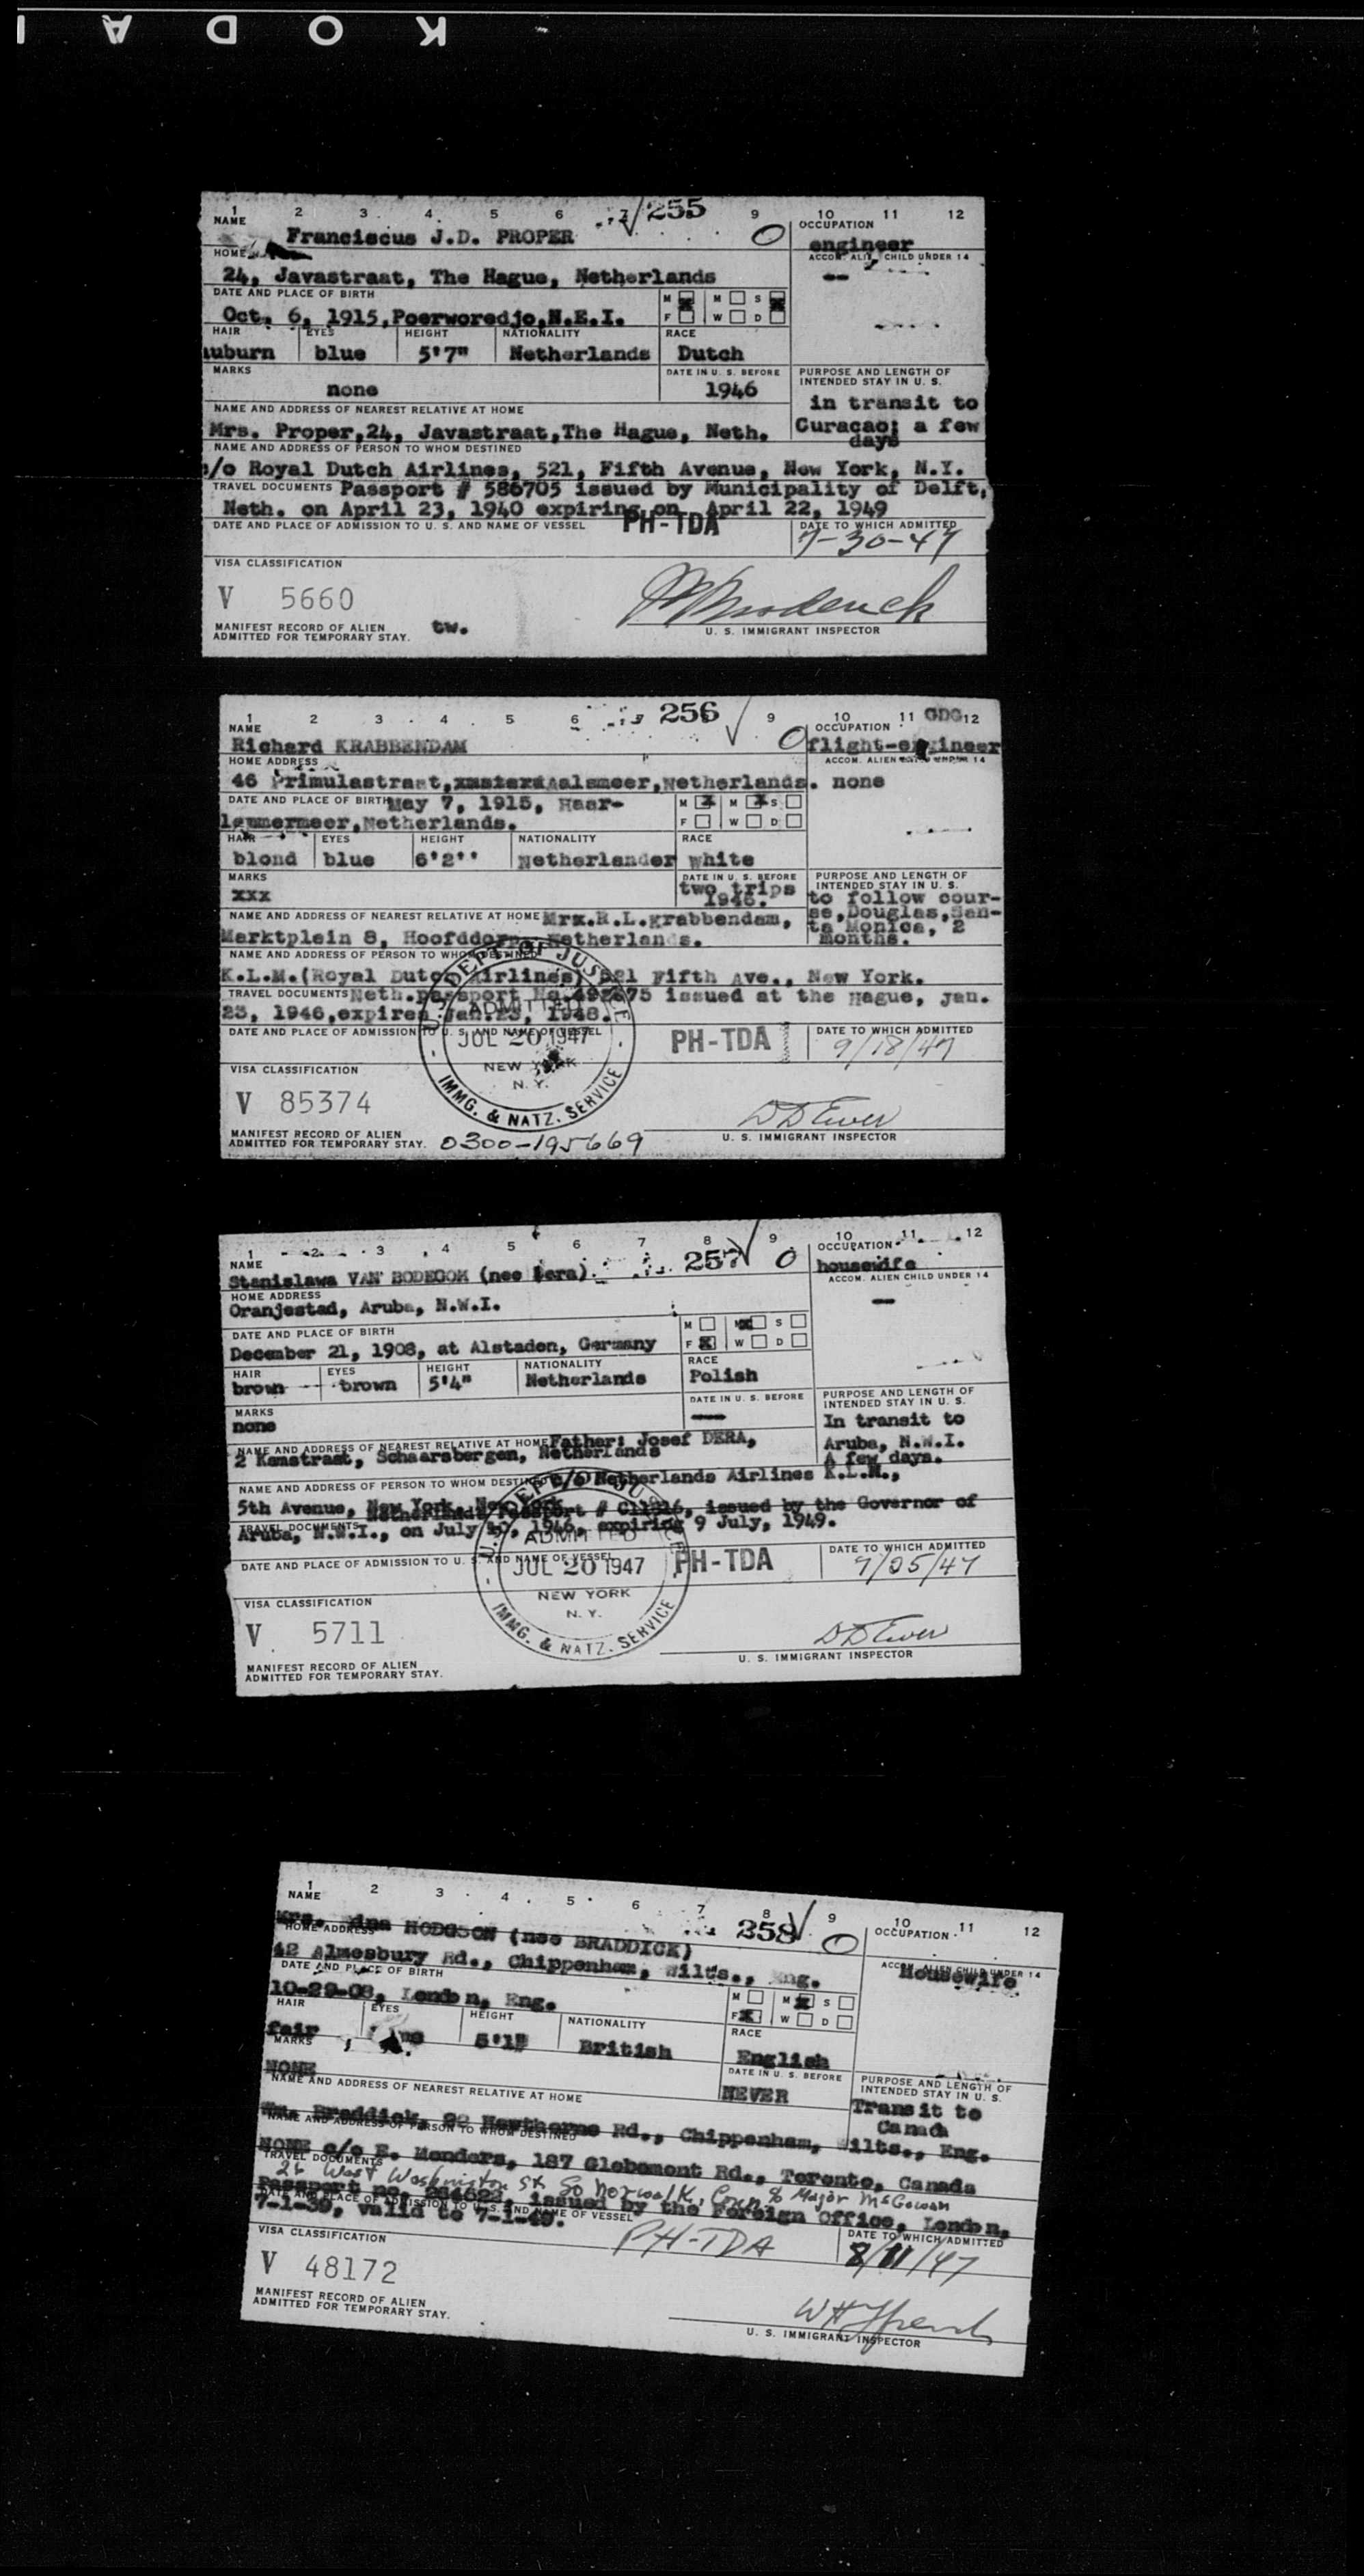 KODA
1 2 3 4 5 6 7 255 9 10 11 12
NAME
Franciscus J.D. PROPER
O
OCCUPATION
engineer
HOME
24, Javastraat, The Hague, Netherlands
ACCOM. ALIEN CHILD UNDER 14
--
DATE AND PLACE OF BIRTH
Oct. 6, 1915, Poerworedjo, N.E.I.
M M S
F W D
HAIR EYES HEIGHT NATIONALITY RACE
auburn blue 5'7" Netherlands Dutch
MARKS
none
DATE IN U. S. BEFORE
1946
PURPOSE AND LENGTH OF
INTENDED STAY IN U. S.
in transit to
Curacao; a few
days
NAME AND ADDRESS OF NEAREST RELATIVE AT HOME
Mrs. Proper, 24, Javastraat, The Hague, Neth.
NAME AND ADDRESS OF PERSON TO WHOM DESTINED
c/o Royal Dutch Airlines, 521, Fifth Avenue, New York, N.Y.
TRAVEL DOCUMENTS Passport # 586705 issued by Municipality of Delft,
Neth. on April 23, 1940 expiring on April 22, 1949
DATE AND PLACE OF ADMISSION TO U. S. AND NAME OF VESSEL PH-TDA
DATE TO WHICH ADMITTED
7-30-47
VISA CLASSIFICATION
V 5660
MANIFEST RECORD OF ALIEN
ADMITTED FOR TEMPORARY STAY. tw.
U. S. IMMIGRANT INSPECTOR
1 2 3 4 5 6 7 256 9 10 11 GDG 12
NAME
Richard KRABBENDAM
O
OCCUPATION
flight-engineer
HOME ADDRESS
46 Primulastraat, Aalsmeer, Netherlands.
ACCOM. ALIEN CHILD UNDER 14
none
DATE AND PLACE OF BIRTH May 7, 1915, Haar-
lemmermeer, Netherlands.
M X M X S
F W D
HAIR EYES HEIGHT NATIONALITY RACE
blond blue 6'2'' Netherlander white
MARKS
xxx
DATE IN U. S. BEFORE
two trips
1946.
PURPOSE AND LENGTH OF
INTENDED STAY IN U. S.
to follow cour-
se, Douglas, San-
ta Monica, 2
months.
NAME AND ADDRESS OF NEAREST RELATIVE AT HOME Mrs. R.L. Krabbendam,
Marktplein 8, Hoofddorp, Netherlands.
NAME AND ADDRESS OF PERSON TO WHOM DESTINED
K.L.M. (Royal Dutch Airlines) 521 Fifth Ave., New York.
TRAVEL DOCUMENTS Neth. passport No. issued at the Hague, Jan.
23, 1946, expires Jan. 23, 1948.
DATE AND PLACE OF ADMISSION TO U. S. AND NAME OF VESSEL
PH-TDA
DATE TO WHICH ADMITTED
9/18/47
U.S. DEPT. OF JUSTICE
ADMITTED
JUL 20 1947
NEW YORK
N. Y.
IMMG. & NATZ. SERVICE
VISA CLASSIFICATION
V 85374
MANIFEST RECORD OF ALIEN
ADMITTED FOR TEMPORARY STAY. 0300-195669
D D Ewer
U. S. IMMIGRANT INSPECTOR
1 2 3 4 5 6 7 8 257 9 10 11 12
NAME
Stanislawa VAN BODEGOM (nee Dera)
O
OCCUPATION
housewife
HOME ADDRESS
Oranjestad, Aruba, N.W.I.
ACCOM. ALIEN CHILD UNDER 14
--
DATE AND PLACE OF BIRTH
December 21, 1908, at Alstaden, Germany
M M X S
F X W D
HAIR EYES HEIGHT NATIONALITY RACE
brown brown 5'4" Netherlands Polish
MARKS
none
DATE IN U. S. BEFORE
----
PURPOSE AND LENGTH OF
INTENDED STAY IN U. S.
In transit to
Aruba, N.W.I.
A few days.
NAME AND ADDRESS OF NEAREST RELATIVE AT HOME Father: Josef DERA,
2 Kemstraat, Schaarsbergen, Netherlands
NAME AND ADDRESS OF PERSON TO WHOM DESTINED c/o Netherlands Airlines K.L.M.,
5th Avenue, New York, New York
TRAVEL DOCUMENTS Netherlands Passport # C11816, issued by the Governor of
Aruba, N.W.I., on July 10, 1946, expiring 9 July, 1949.
DATE AND PLACE OF ADMISSION TO U. S. AND NAME OF VESSEL
PH-TDA
DATE TO WHICH ADMITTED
7/25/47
U.S. DEPT. OF JUSTICE
ADMITTED
JUL 20 1947
NEW YORK
N. Y.
IMMG. & NATZ. SERVICE
VISA CLASSIFICATION
V 5711
MANIFEST RECORD OF ALIEN
ADMITTED FOR TEMPORARY STAY.
D D Ewer
U. S. IMMIGRANT INSPECTOR
1 2 3 4 5 6 7 8 258 9 10 11 12
NAME
Mrs. HODGSON (nee BRADDICK)
O
OCCUPATION
Housewife
HOME ADDRESS
42 Almesbury Rd., Chippenham, Wilts., Eng.
ACCOM. ALIEN CHILD UNDER 14
DATE AND PLACE OF BIRTH
10-29-08, London, Eng.
M M X S
F X W D
HAIR EYES HEIGHT NATIONALITY RACE
fair 5'1" British English
MARKS
NONE
DATE IN U. S. BEFORE
NEVER
PURPOSE AND LENGTH OF
INTENDED STAY IN U. S.
Transit to
Canada
NAME AND ADDRESS OF NEAREST RELATIVE AT HOME
Wm. Braddick, 22 Hawthorne Rd., Chippenham, Wilts., Eng.
NAME AND ADDRESS OF PERSON TO WHOM DESTINED
NONE c/o E. Menders, 187 Glebemont Rd., Toronto, Canada
TRAVEL DOCUMENTS
26 West Washington St So Norwalk, Conn % Major McGowan
Passport no. issued by the Foreign Office, London,
7-1-39, valid to 7-1-49.
DATE AND PLACE OF ADMISSION TO U. S. AND NAME OF VESSEL
PH-TDA
DATE TO WHICH ADMITTED
8/11/47
VISA CLASSIFICATION
V 48172
MANIFEST RECORD OF ALIEN
ADMITTED FOR TEMPORARY STAY.
U. S. IMMIGRANT INSPECTOR